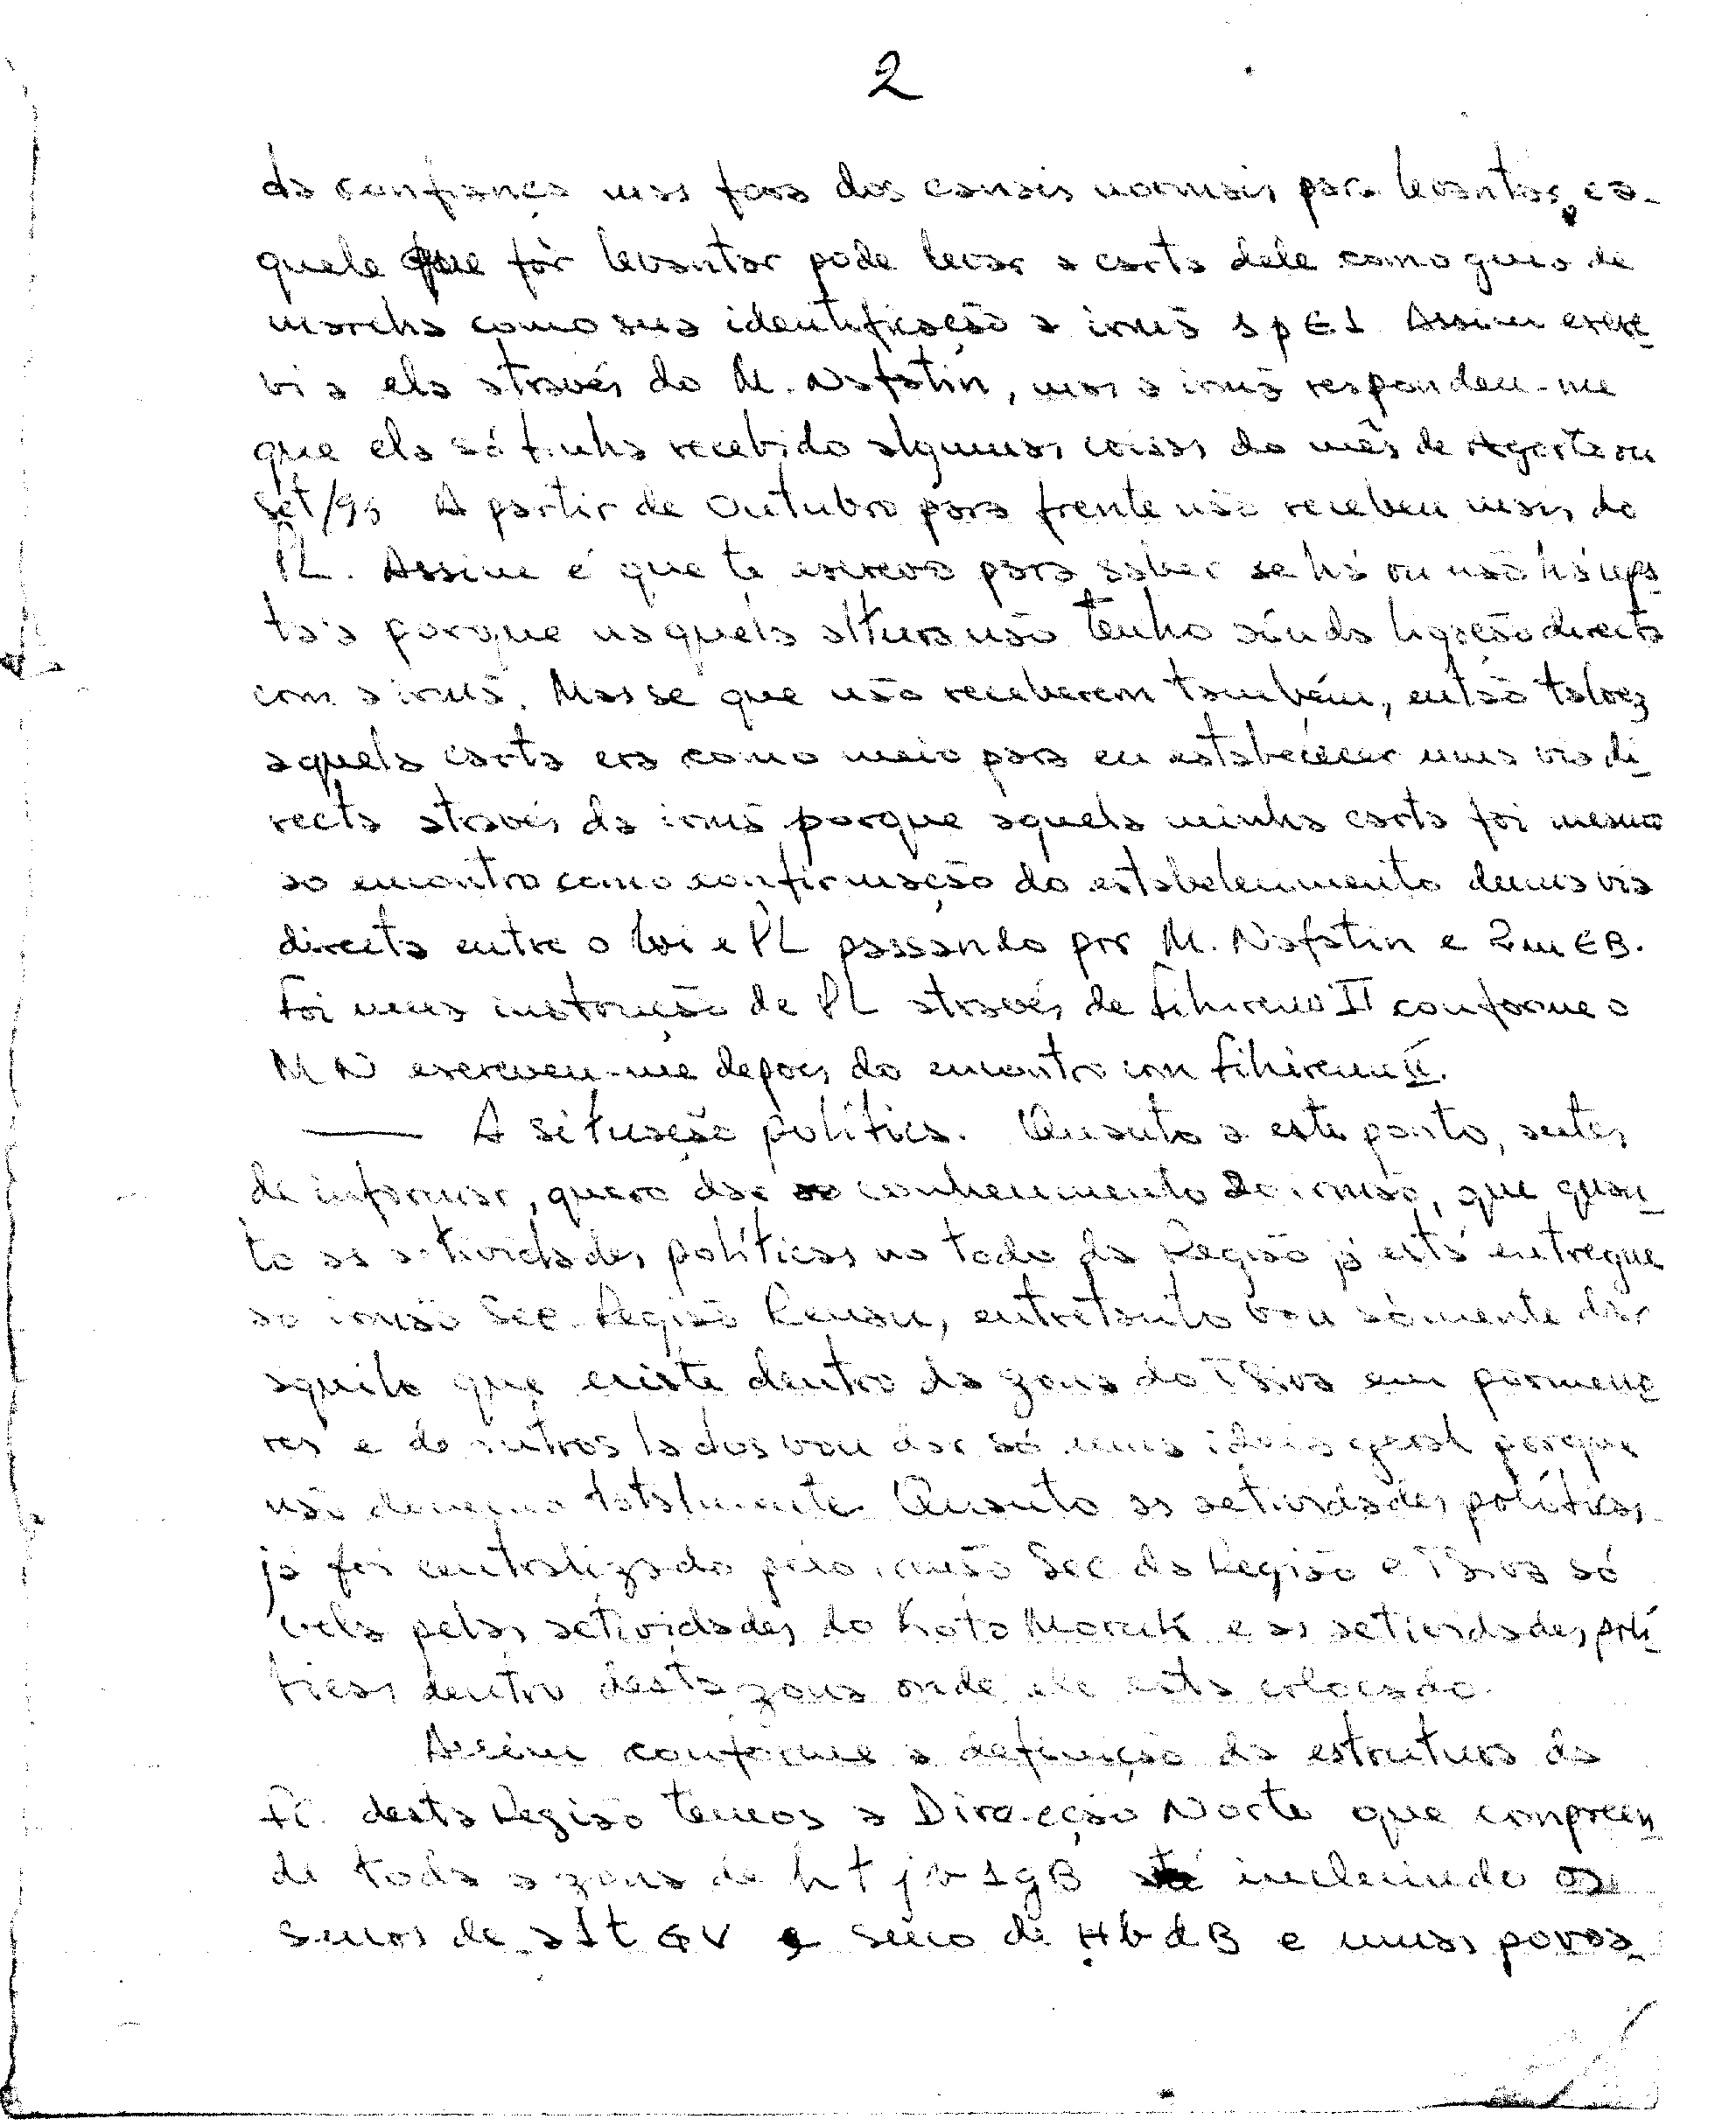 2
da confiança mas fora dos canais normais para levantar, ea-
quele que fôr levantar pode levar a carta dele como guia de
marcha como sua identificação a irmã s p E 1 Assim escre-
vi a ela através do M. Nafatin, mas a irmã respondeu-me
que ela só tinha recebido algumas coisas do mês de Agosto ou
Set/95 A partir de Outubro para frente não recebeu mais do
PL. Assim é que te escrevo para saber se há ou não há
porque naquela altura não tenho ainda ligação directa
com a irmã. Mas se que não receberem também, então talvez
aquela carta era como meio para eu estabelecer uma via di-
recta através da irmã porque aquela minha carta foi mesmo
ao encontro como confirmação do estabelecimento duma via
directa entre o e PL passando por M. Nafatin e 2 m E B.
Foi uma instrução de PL através de Fihirema II conforme o
M N escreveu-me depois do encontro com Fihirema II.
— A situação política. Quanto a este ponto, antes
de informar, quero dar ao conhecimento ao irmão, que quan-
to as actividades políticas no todo da Região já está entregue
ao irmão Sec. Região Renan, entretanto vou sómente dar
aquilo que existe dentro da zona do T Siva em pormeno-
res e de outros lados vou dar só uma ideia geral porque
não domino totalmente. Quanto as actividades políticas
já foi centralizado pelo irmão Sec da Região e T Siva só
vela pelas actividades do Kota Moruk e as actividades polí-
ticas dentro desta zona onde ele está colocado.
Assim conforme a definição da estrutura da
Fc. desta Região temos a Direcção Norte que compreen-
de toda a zona de h t j v 1 g B até incluindo os
sucos de a 1 t G V e suco de H b d B e umas povoa-